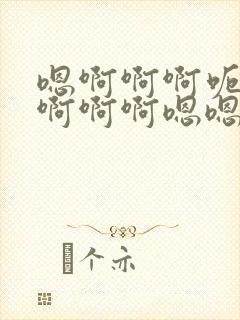 嗯啊啊啊呃
啊啊啊嗯嗯
个亦